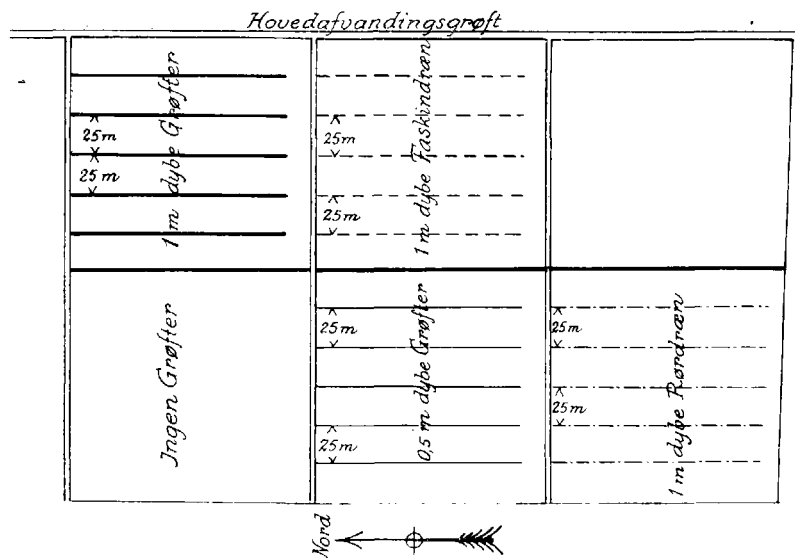 Hovedafvandingsgrøft
1 m dybe Grøfter
25 m
25 m
1 m dybe Faskindræn
25 m
25 m
Ingen Grøfter
0,5 m dybe Grøfter
25 m
25 m
1 m dybe Rørdræn
25 m
25 m
Nord